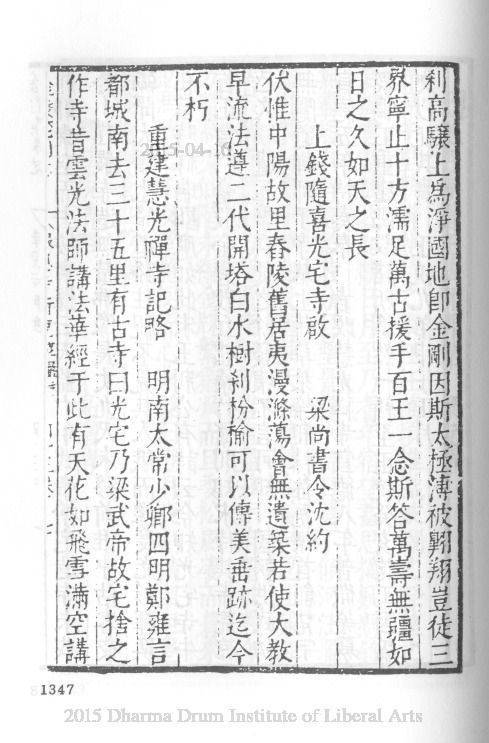 利高驤上爲淨國地卽金剛因斯太極溥被翾翔豈徒三
界寧止十方濡足萬古援手百王一念斯答萬壽無疆如
日之久如天之長
上錢隨喜光宅寺啟　　梁尚書令沈約
伏惟中陽故里舂陵舊居夷漫滌蕩會無遺築若使大教
早流法遵二代開塔白水樹刹枌榆可以傳美垂跡迄今
不朽
重建慧光禪寺記略　明南太常少卿四明鄭雍言
都城南去三十五里有古寺曰光宅乃梁武帝故宅捨之
作寺昔雲光法師講法華經于此有天花如飛雪滿空講
2015-04-16
1347
2015 Dharma Drum Institute of Liberal Arts